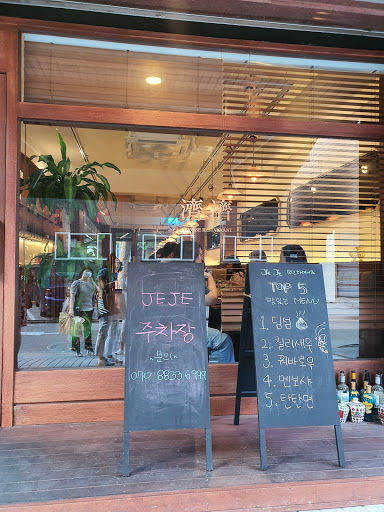 濟濟
JEJE
주차장
문의
070 8833 6999
JeJe
TOP 5
맛있는 MENU
1. 딤섬
2. 칠리새우
3. 꿔바로우
4. 멘보샤
5. 탄탄면